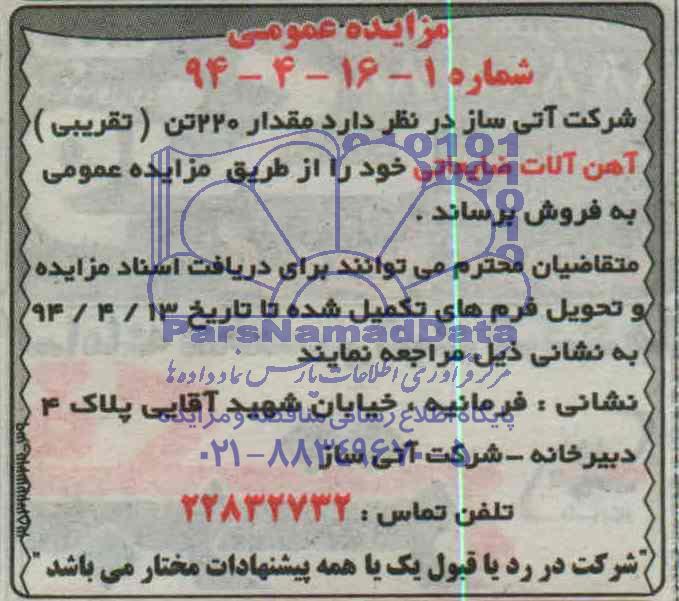 مزایده عمومی
شماره ۱ - ۱۶ - ۴ - ۹۴
شرکت آتی ساز در نظر دارد مقدار ۲۲۰تن ( تقریبی )
آهن آلات ضایعاتی خود را از طریق مزایده عمومی
به فروش برساند .
متقاضیان محترم می توانند برای دریافت اسناد مزایده
و تحویل فرم های تکمیل شده تا تاریخ ۱۳ / ۴ / ۹۴
به نشانی ذیل مراجعه نمایند
نشانی : فرمانیه ، خیابان شهید آقایی پلاک ۴
دبیرخانه - شرکت آتی ساز
تلفن تماس : ۲۲۸۳۲۷۳۲
"شرکت در رد یا قبول یک یا همه پیشنهادات مختار می باشد"
ParsNamadData
مرکز فرآوری اطلاعات پارس نماد داده ها
پایگاه اطلاع رسانی مناقصه و مزایده
۰۲۱-۸۸۳۴۹۶۷۰-۵